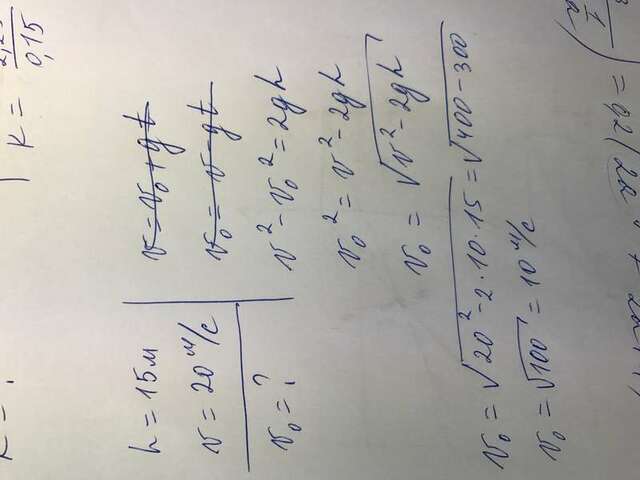 K =
0,15
h = 15м
v = 20 м/с
v₀ = ?
v = v₀ + gt
v₀ = v - gt
v² - v₀² = 2gh
v₀² = v² - 2gh
v₀ = √(v² - 2gh)
v₀ = √(20² - 2·10·15) = √(400 - 300)
v₀ = √100 = 10 м/с